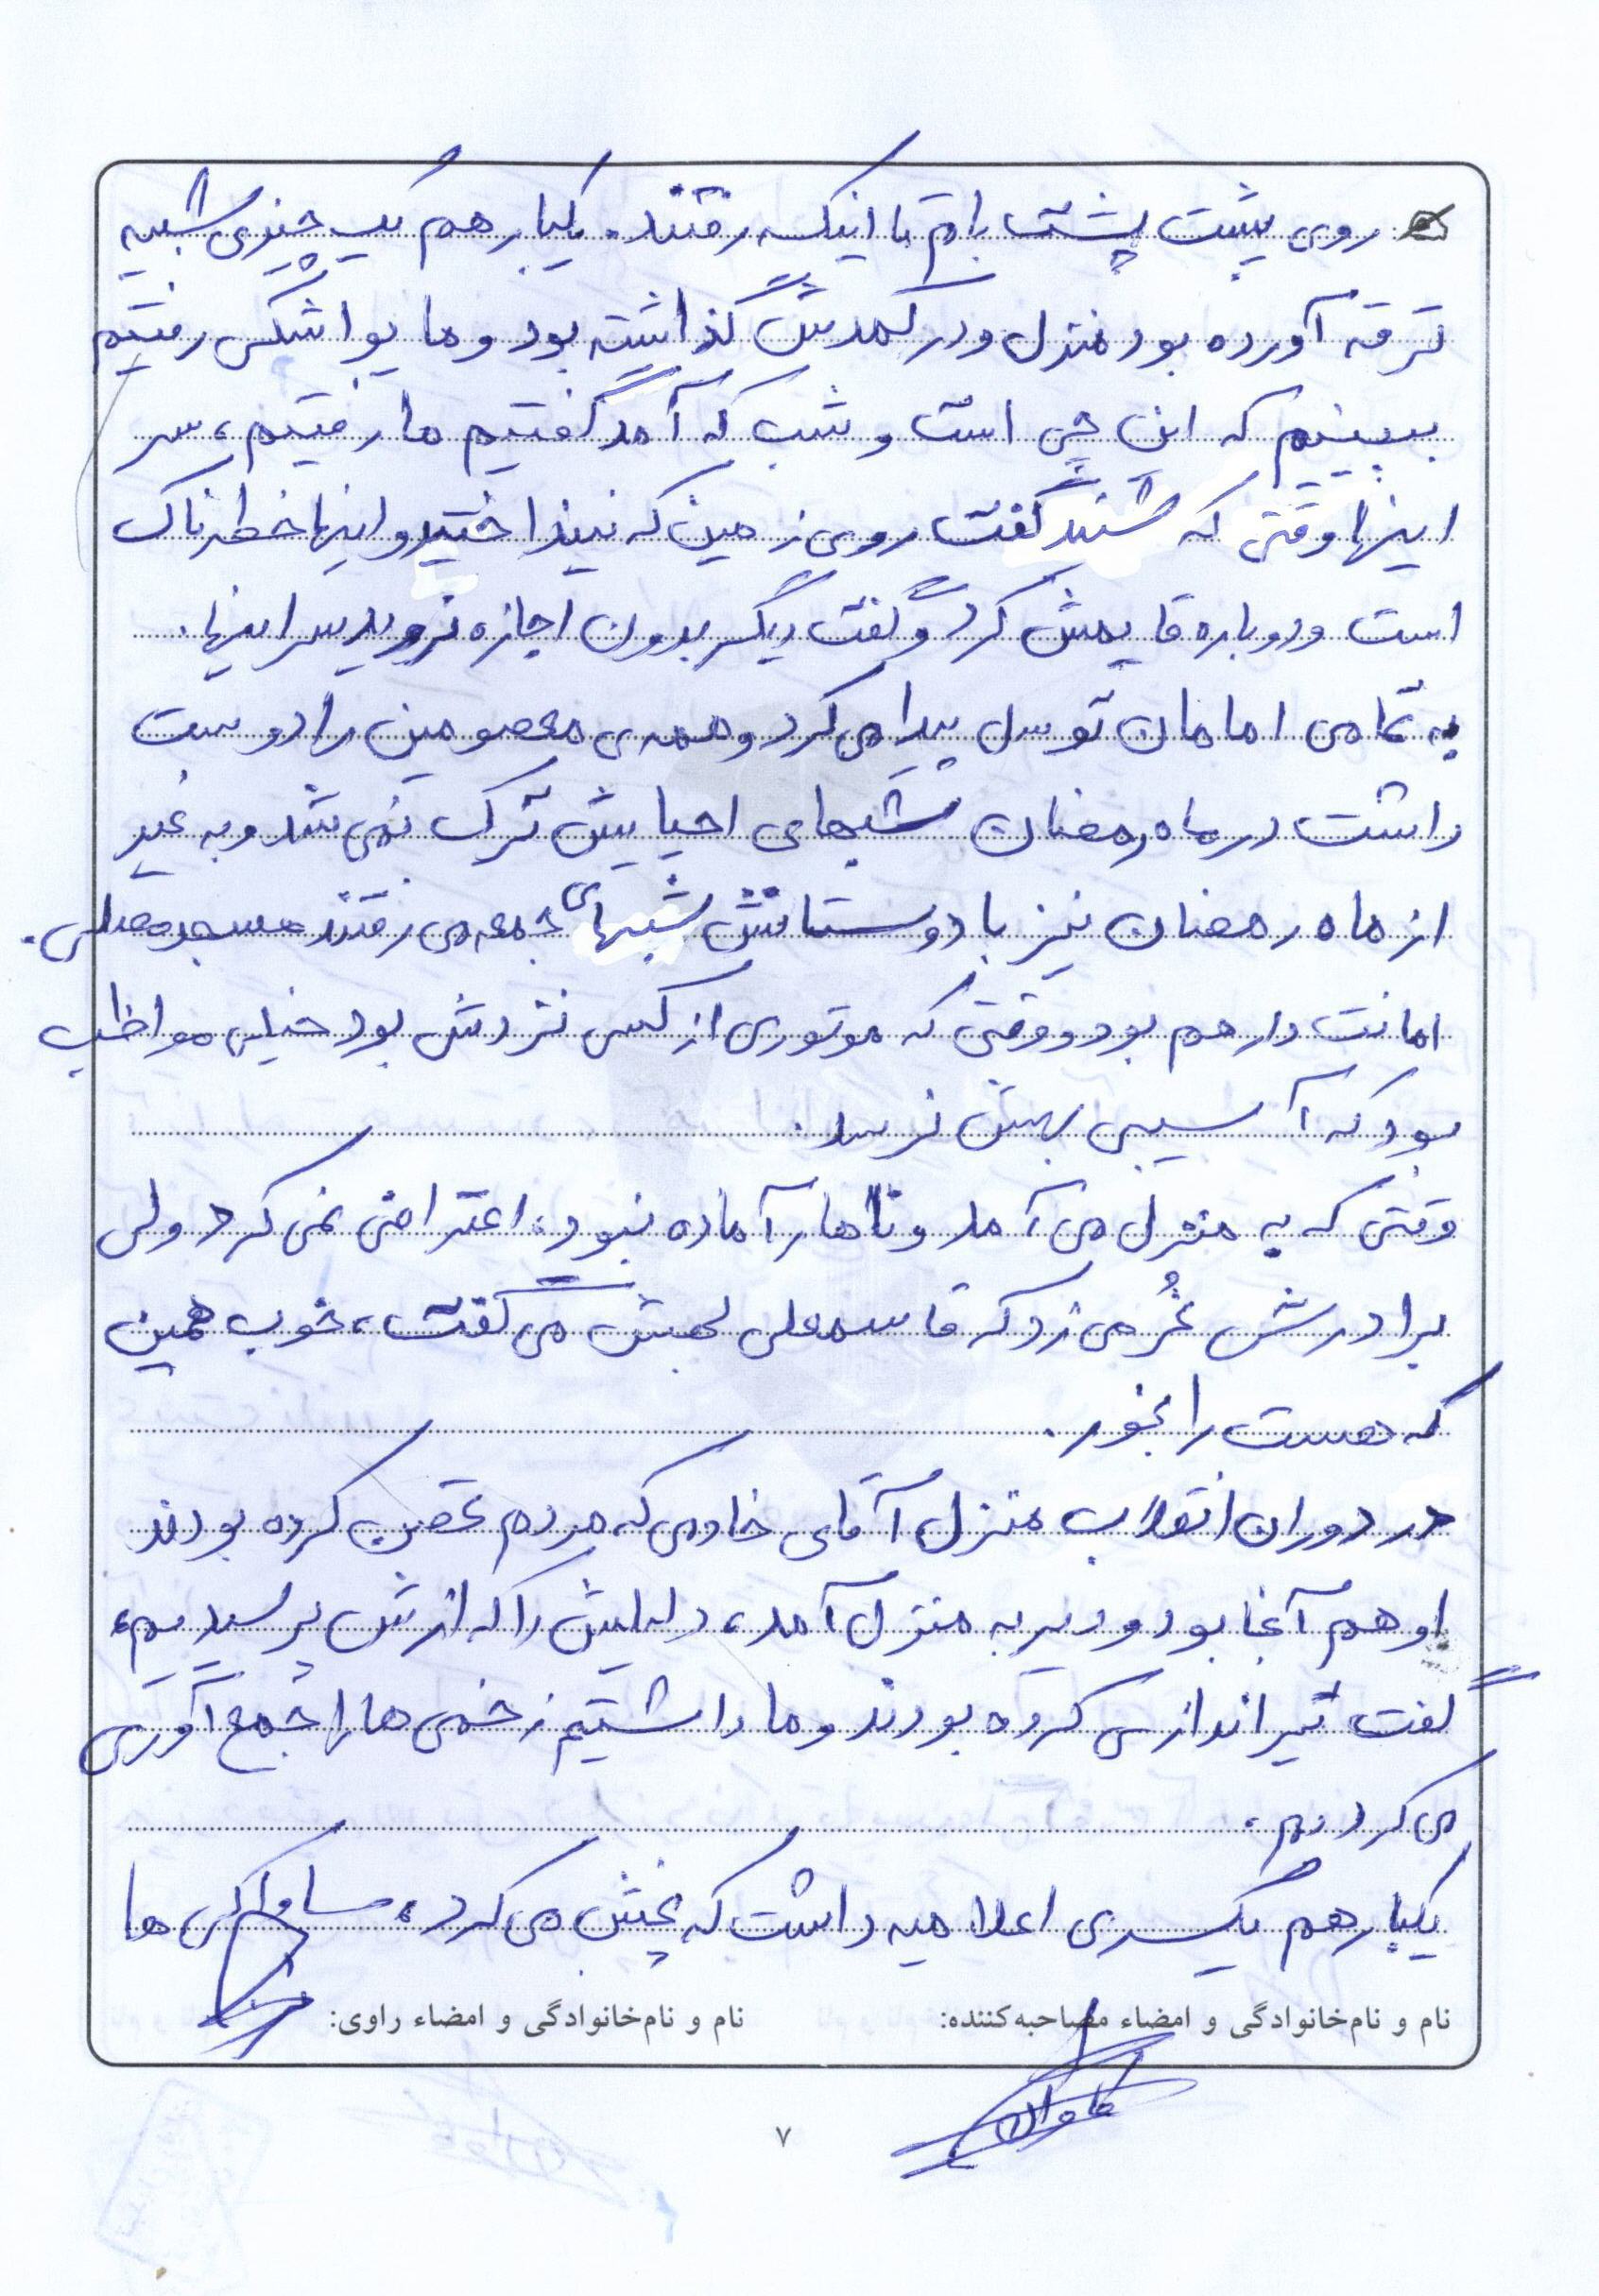 روی پشت پشت بام تا اینکه رفتند. یکبار هم یک چیزی شبیه
ترقه آورده بود منزل و در کمدش گذاشته بود و ما یواشکی رفتیم
ببینیم که این چی است و شب که آمد گفتیم ما رفتیم، سر
اینها وقتی که شنید گفت روی زمین که نینداختید و اینها خطرناک
است و دوباره قایمش کرد و گفت دیگر بدون اجازه نروید سر اینها.
به تمامی امامان توسل پیدا می کرد و همه ی معصومین را دوست
داشت در ماه رمضان شبهای احیایش ترک نمی شد و به غیر
از ماه رمضان نیز با دوستانش شبهای جمعه می رفتند مسجد مصلی.
امانت دار هم بود و وقتی که موتوری از کسی نزدش بود خیلی مواظب
بود که آسیبی بهش نرسد.
وقتی که به منزل می آمد و ناهار آماده نبود، اعتراضی نمی کرد ولی
برادرش غُر می زد که قاسمعلی بهش می گفت، خوب همین
که هست را بخور.
در دوران انقلاب منزل آقای خادمی که مردم تحصن کرده بودند
او هم آنجا بود و دیر به منزل آمد، دلیلش را که ازش پرسیدیم،
گفت تیراندازی کرده بودند و ما داشتیم زخمی ها را جمع آوری
می کردیم.
یکبار هم یکسری اعلامیه داشت که پخش می کرد، ساواکی ها
نام و نام‌خانوادگی و امضاء مصاحبه‌کننده: نام و نام‌خانوادگی و امضاء راوی:
۷